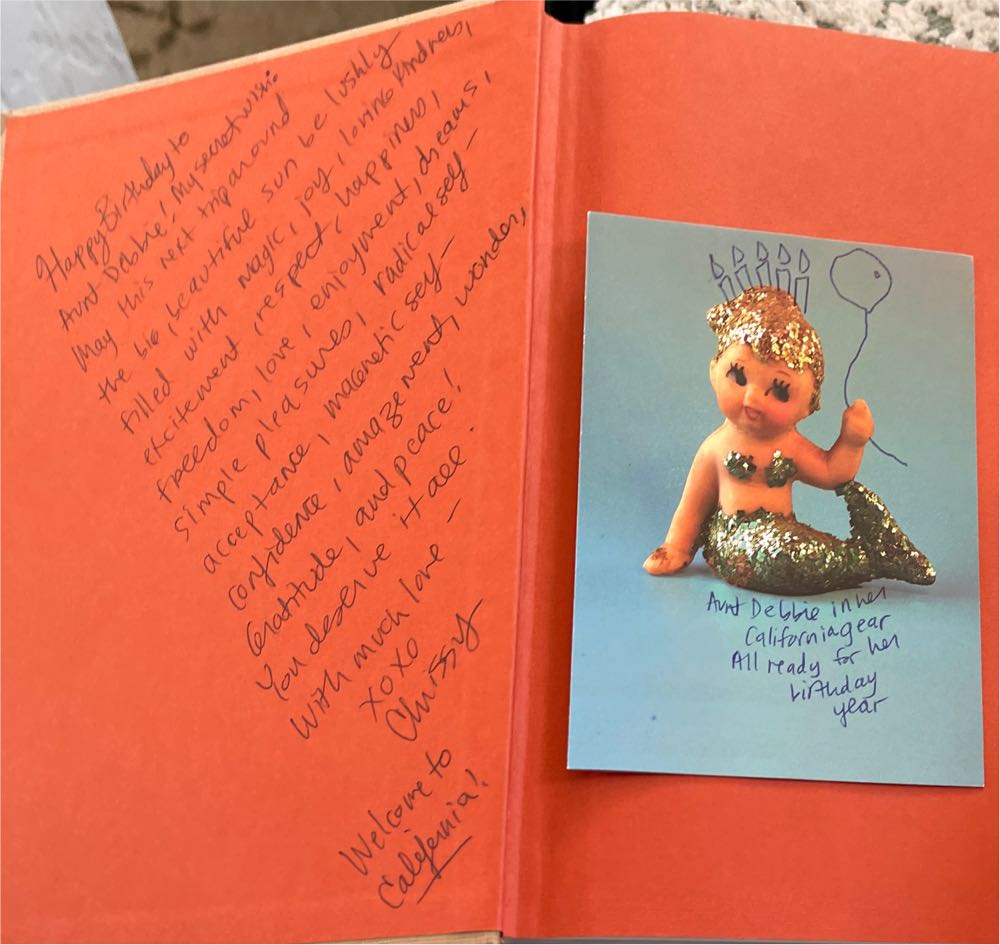 Happy Birthday to
Aunt Debbie! My secret wish:
May this next trip around
the big, beautiful sun be lushly
filled with magic, joy, loving kindness,
excitement, respect, happiness,
freedom, love, enjoyment, dreams,
simple pleasures, radical self-
acceptance, magnetic self-
confidence, amazement, wonder,
Gratitude, and peace!
You deserve it all.
With much love –
XOXO
Chrissy
Welcome to
California!
Aunt Debbie in her
California gear
All ready for her
birthday
year